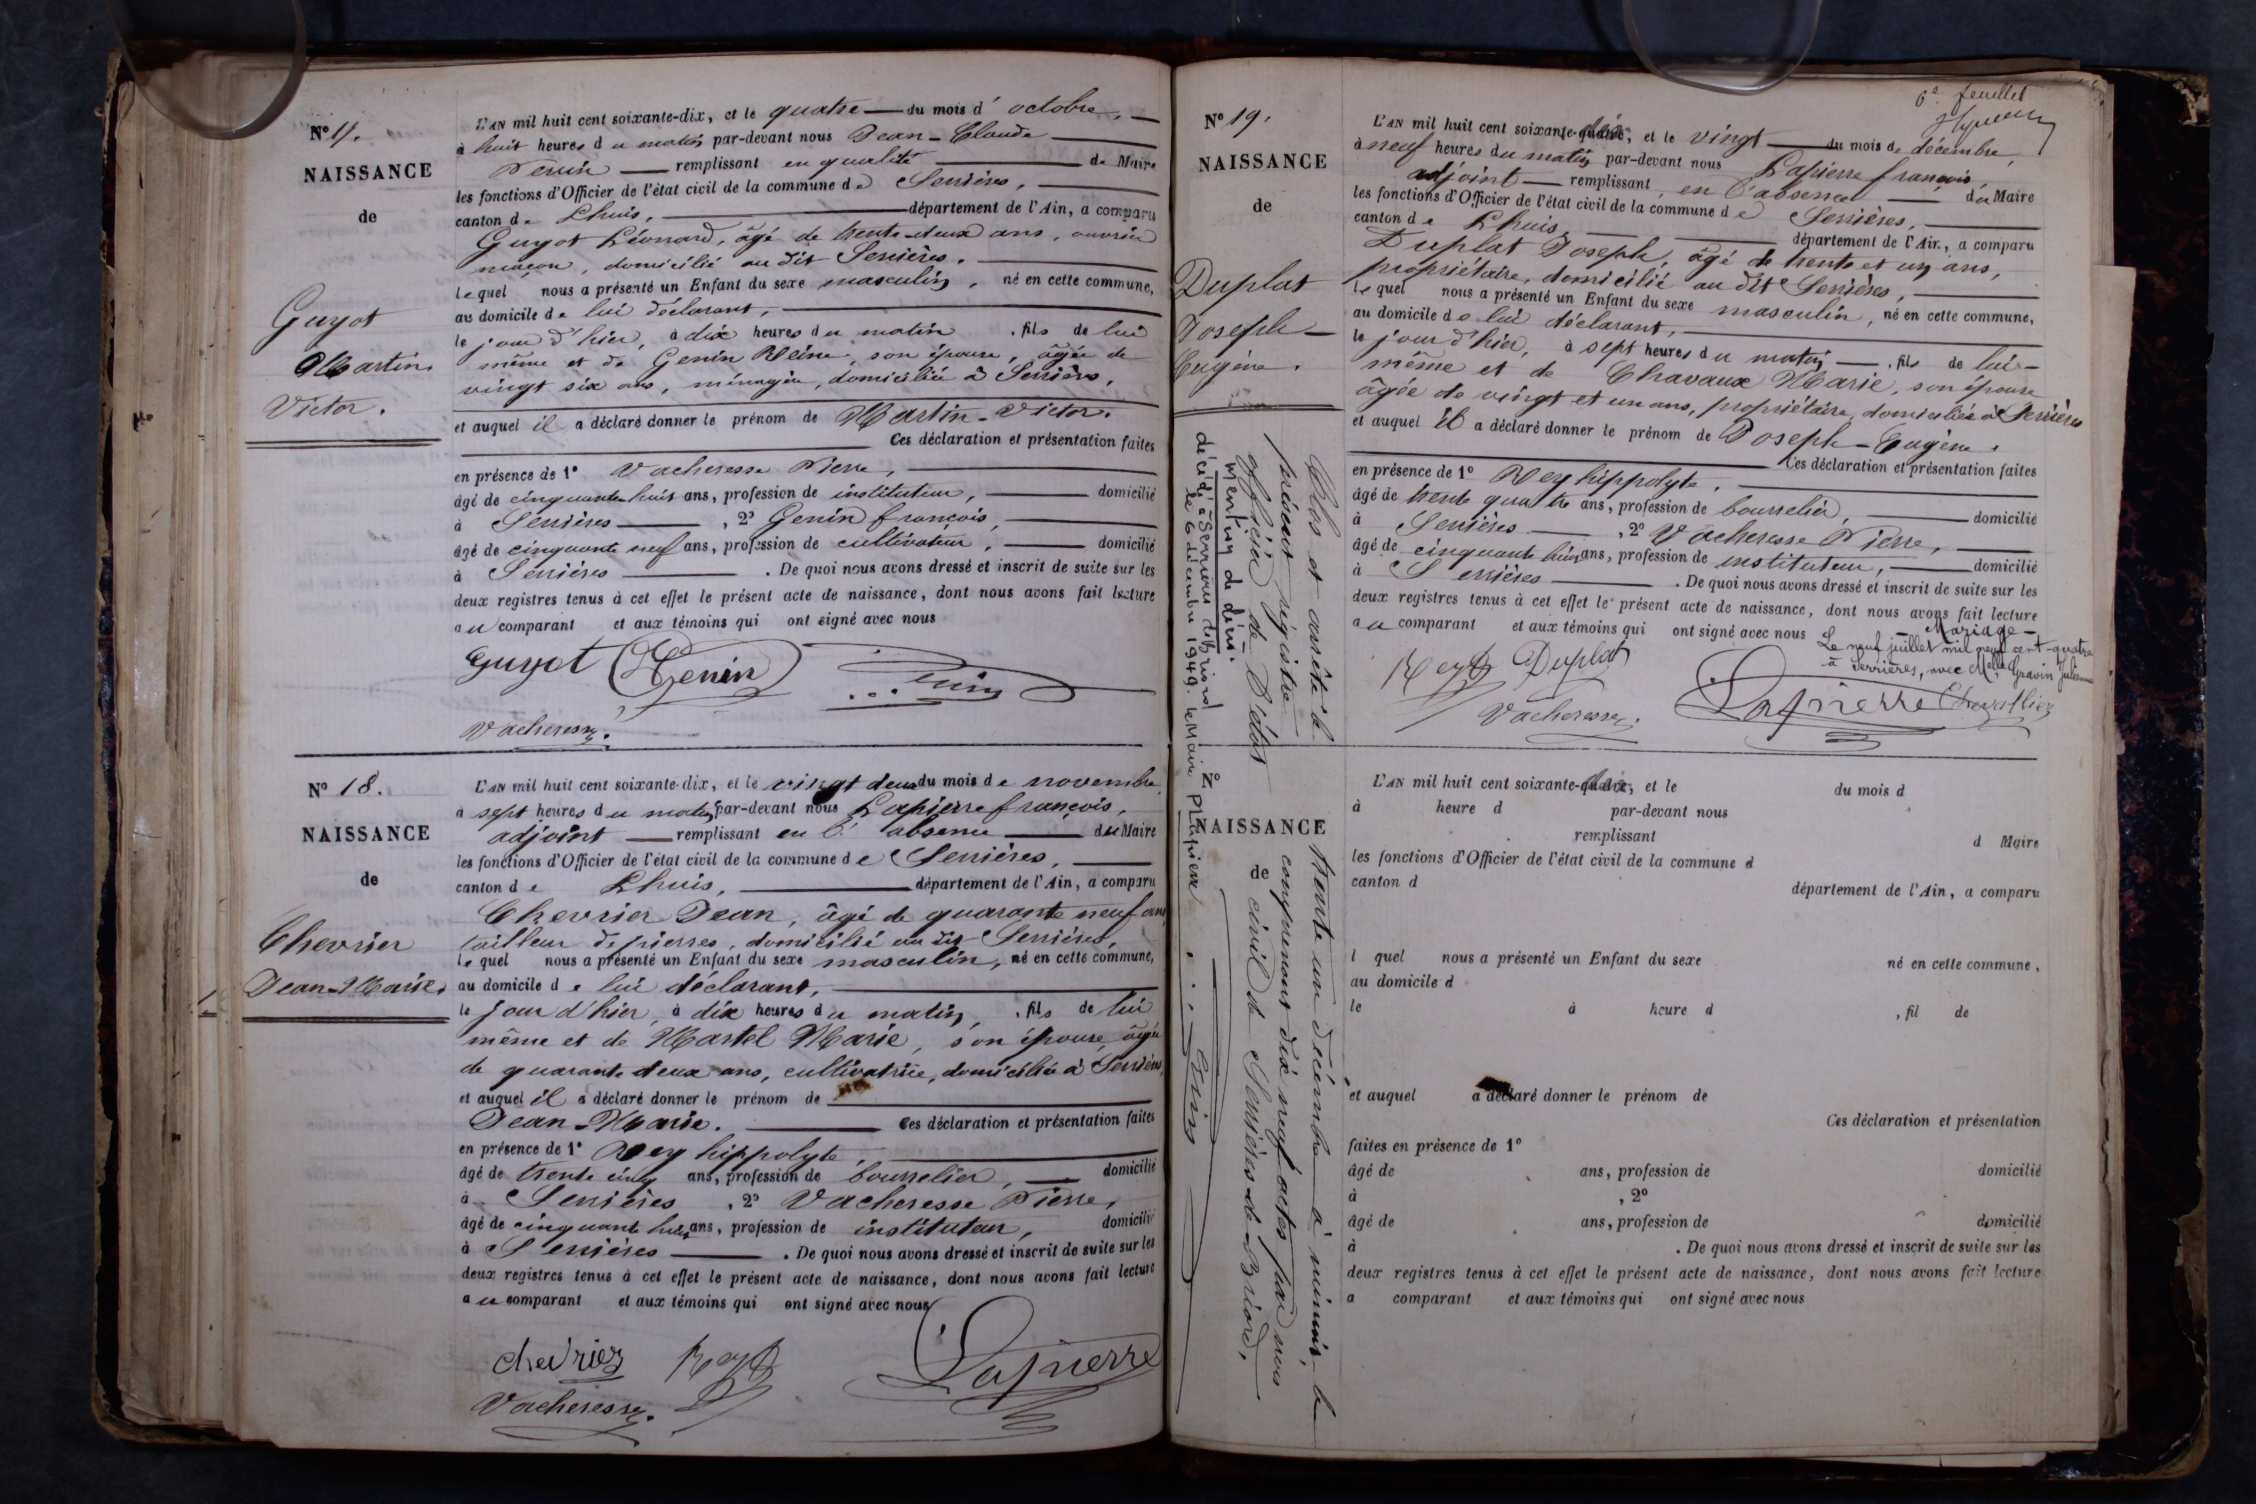 N° 17.
NAISSANCE
de
Guyot
Martin
Victor.
L'AN mil huit cent soixante-dix, et le quatre du mois d'octobre,
à huit heures du matin par-devant nous Jean-Claude
Perrin remplissant en qualité de Maire
les fonctions d'Officier de l'état civil de la commune de Serrières,
canton de Lhuis, département de l'Ain, a comparu
Guyot Léonard, âgé de trente-deux ans, ouvrier
maçon, domicilié au dit Serrières.
lequel nous a présenté un Enfant du sexe masculin, né en cette commune,
au domicile de lui déclarant,
le jour d'hier, à dix heures du matin, fils de lui
même et de Genin Reine, son épouse, âgée de
vingt six ans, ménagère, domiciliée à Serrières,
et auquel il a déclaré donner le prénom de Martin-Victor.
Ces déclaration et présentation faites
en présence de 1° Vacheresse Pierre,
âgé de cinquante-huit ans, profession de instituteur, domicilié
à Serrières, 2° Genin françois,
âgé de cinquante neuf ans, profession de cultivateur, domicilié
à Serrières. De quoi nous avons dressé et inscrit de suite sur les
deux registres tenus à cet effet le présent acte de naissance, dont nous avons fait lecture
au comparant et aux témoins qui ont signé avec nous
Guyot Genin Perrin
Vacheresse.
N° 18.
NAISSANCE
de
Chevrier
Jean-Marie.
L'AN mil huit cent soixante-dix, et le vingt deux du mois de novembre
à sept heures du matin par-devant nous Lapierre françois,
adjoint remplissant en l'absence du Maire
les fonctions d'Officier de l'état civil de la commune de Serrières,
canton de Lhuis, département de l'Ain, a comparu
Chevrier Jean, âgé de quarante neuf ans
tailleur de pierres, domicilié au dit Serrières,
lequel nous a présenté un Enfant du sexe masculin, né en cette commune,
au domicile de lui déclarant,
le jour d'hier, à dix heures du matin, fils de lui
même et de Martel Marie, son épouse, âgée
de quarante deux ans, cultivatrice, domiciliée à Serrières,
et auquel il a déclaré donner le prénom de
Jean-Marie. Ces déclaration et présentation faites
en présence de 1° Rey hippolyte
âgé de trente cinq ans, profession de bourrelier, domicilié
à Serrières, 2° Vacheresse Pierre,
âgé de cinquante huit ans, profession de instituteur, domicilié
à Serrières. De quoi nous avons dressé et inscrit de suite sur les
deux registres tenus à cet effet le présent acte de naissance, dont nous avons fait lecture
au comparant et aux témoins qui ont signé avec nous
chevrier Rey Lapierre
Vacheresse.
6e feuillet
N° 19.
NAISSANCE
de
Duplat
Joseph-
Eugène.
L'AN mil huit cent soixante-dix, et le vingt du mois de décembre,
à neuf heures du matin par-devant nous Lapierre françois
adjoint remplissant en l'absence du Maire
les fonctions d'Officier de l'état civil de la commune de Serrières,
canton de Lhuis, département de l'Ain, a comparu
Duplat Joseph, âgé de trente et un ans,
propriétaire, domicilié au dit Serrières,
lequel nous a présenté un Enfant du sexe masculin, né en cette commune,
au domicile de lui déclarant,
le jour d'hier, à sept heures du matin, fils de lui-
même et de Chavaux Marie, son épouse
âgée de vingt et un ans, propriétaire, domiciliée à Serrières
et auquel il a déclaré donner le prénom de Joseph-Eugène.
Ces déclaration et présentation faites
en présence de 1° Rey hippolyte,
âgé de trente quatre ans, profession de bourrelier, domicilié
à Serrières, 2° Vacheresse Pierre,
âgé de cinquante huit ans, profession de instituteur, domicilié
à Serrières. De quoi nous avons dressé et inscrit de suite sur les
deux registres tenus à cet effet le présent acte de naissance, dont nous avons fait lecture
au comparant et aux témoins qui ont signé avec nous
Mariage
Le neuf juillet mil neuf cent quatre
à Serrières, avec Melle Gravin
Rey Duplat
Vacheresse. Lapierre Chevallier
mention de décès.
décédé à Serrières de Briord
le 6 décembre 1949. le Maire
Clos et arrêté le trente un décembre à minuit le
présent registre comprenant dix neuf actes par nous
officier de l'état civil de Serrières-de-Briord,
Perrin
N°
NAISSANCE
de
L'AN mil huit cent soixante-dix, et le du mois d
à heure d par-devant nous
remplissant d Maire
les fonctions d'Officier de l'état civil de la commune d
canton d département de l'Ain, a comparu
l quel nous a présenté un Enfant du sexe né en cette commune,
au domicile d
le à heure d , fil de
et auquel a déclaré donner le prénom de
Ces déclaration et présentation
faites en présence de 1°
âgé de ans, profession de domicilié
à , 2°
âgé de ans, profession de domicilié
à . De quoi nous avons dressé et inscrit de suite sur les
deux registres tenus à cet effet le présent acte de naissance, dont nous avons fait lecture
a comparant et aux témoins qui ont signé avec nous